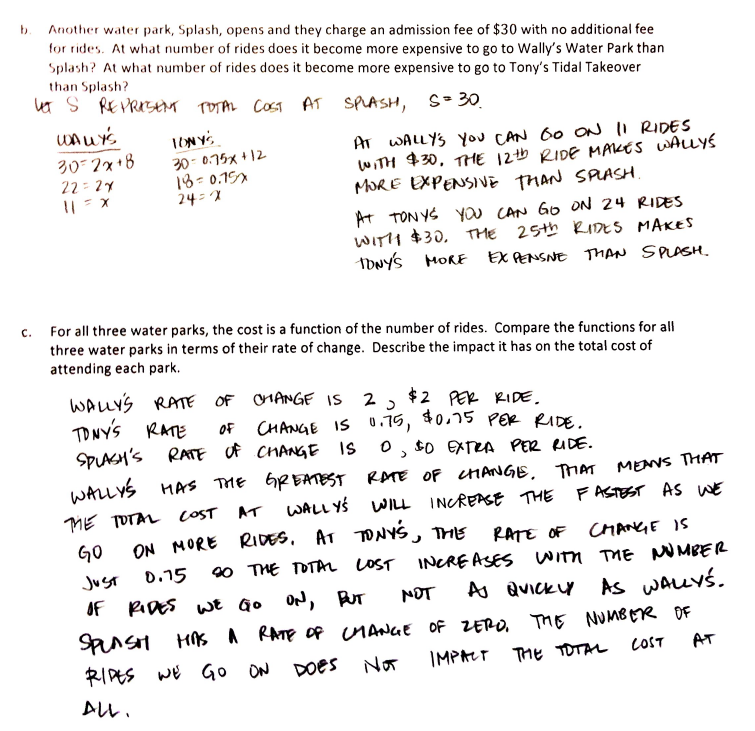 b. Another water park, Splash, opens and they charge an admission fee of $30 with no additional fee
for rides. At what number of rides does it become more expensive to go to Wally's Water Park than
Splash? At what number of rides does it become more expensive to go to Tony's Tidal Takeover
than Splash?
LET S REPRESENT TOTAL COST AT SPLASH, S = 30.
WALLY'S
30 = 2x + 8
22 = 2x
11 = x
TONY'S
30 = 0.75x + 12
18 = 0.75x
24 = x
AT WALLY'S YOU CAN GO ON 11 RIDES
WITH $30. THE 12th RIDE MAKES WALLYS
MORE EXPENSIVE THAN SPLASH.
AT TONYS YOU CAN GO ON 24 RIDES
WITH $30. THE 25th RIDES MAKES
TONY'S MORE EXPENSIVE THAN SPLASH.
c. For all three water parks, the cost is a function of the number of rides. Compare the functions for all
three water parks in terms of their rate of change. Describe the impact it has on the total cost of
attending each park.
WALLY'S RATE OF CHANGE IS 2, $2 PER RIDE.
TONY'S RATE OF CHANGE IS 0.75, $0.75 PER RIDE.
SPLASH'S RATE OF CHANGE IS 0, $0 EXTRA PER RIDE.
WALLYS HAS THE GREATEST RATE OF CHANGE. THAT MEANS THAT
THE TOTAL COST AT WALLYS WILL INCREASE THE FASTEST AS WE
GO ON MORE RIDES. AT TONYS, THE RATE OF CHANGE IS
JUST 0.75 SO THE TOTAL COST INCREASES WITH THE NUMBER
OF RIDES WE GO ON, BUT NOT AS QUICKLY AS WALLYS.
SPLASH HAS A RATE OF CHANGE OF ZERO. THE NUMBER OF
RIDES WE GO ON DOES NOT IMPACT THE TOTAL COST AT
ALL.